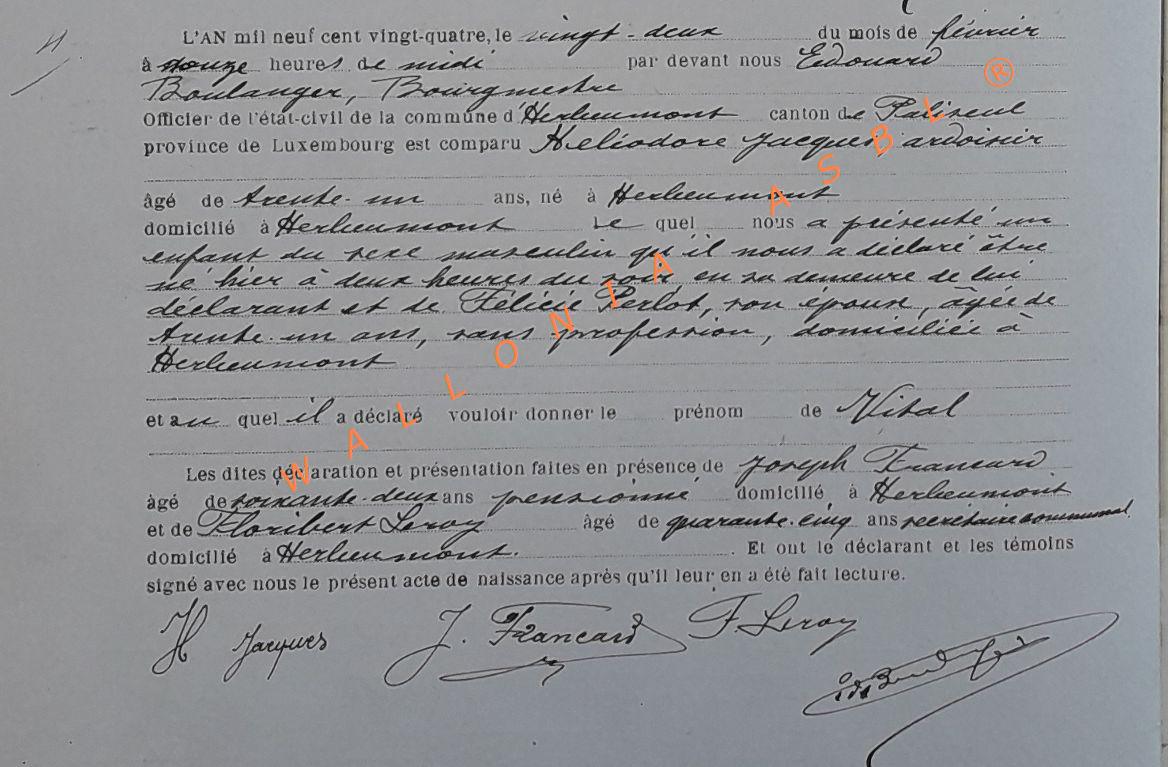 4
L'AN mil neuf cent vingt-quatre, le vingt-deux du mois de février
à douze heures de midi par devant nous Edouard
Boulanger, Bourgmestre
Officier de l'état-civil de la commune d'Herbeumont canton de Paliseul
province de Luxembourg est comparu Héliodore Jacques, ardoisier
âgé de trente-un ans, né à Herbeumont
domicilié à Herbeumont Le quel nous a présenté un
enfant du sexe masculin qu'il nous a déclaré être
né hier à deux heures du soir en sa demeure de lui
déclarant et de Félicie Perlot, son épouse, âgée de
trente-un ans, sans profession, domiciliée à
Herbeumont
et au quel il a déclaré vouloir donner le prénom de Vital
Les dites déclaration et présentation faites en présence de Joseph Francard
âgé de soixante-deux ans pensionné domicilié à Herbeumont
et de Floribert Leroy âgé de quarante-cinq ans secrétaire communal
domicilié à Herbeumont. Et ont le déclarant et les témoins
signé avec nous le présent acte de naissance après qu'il leur en a été fait lecture.
H Jacques J. Francard F. Leroy
Ed. Boulanger
WALLONIA ASBL ®